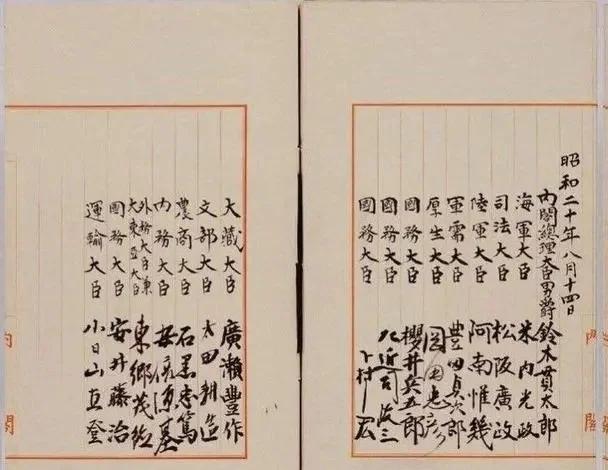 内閣
昭和二十年八月十四日
内閣總理大臣男爵鈴木貫太郎
海軍大臣 米内光政
司法大臣 松阪廣政
陸軍大臣 阿南惟幾
軍需大臣 豊田貞次郎
厚生大臣 岡田忠彦
國務大臣 櫻井兵五郎
國務大臣 左近司政三
國務大臣 下村宏
大藏大臣 廣瀬豊作
文部大臣 太田耕造
農商大臣 石黒忠篤
内務大臣 安倍源基
外務大臣兼
大東亞大臣 東郷茂徳
國務大臣 安井藤治
運輸大臣 小日山直登
内閣